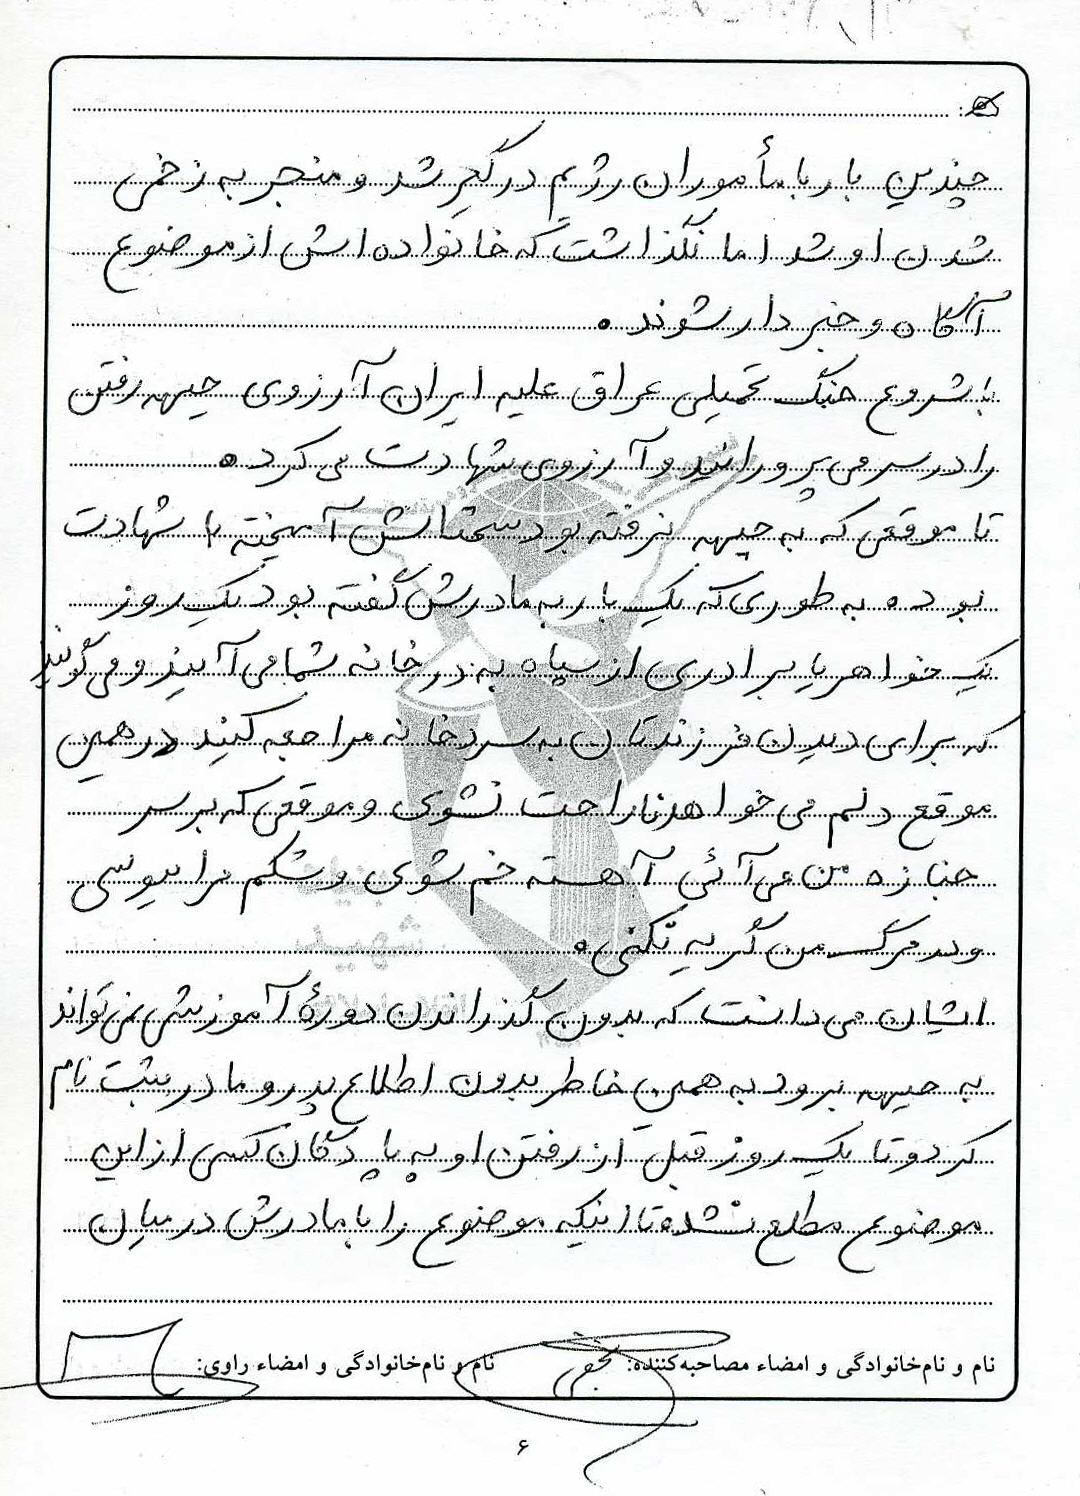 چندین بار با مأموران رژیم درگیر شد و منجر به زخمی
شدن او شد اما نگذاشت که خانواده اش از موضوع
آگاه و خبردار شوند.
با شروع جنگ تحمیلی عراق علیه ایران آرزوی جبهه رفتن
را در سر می پروراند و آرزوی شهادت می کرد.
تا موقعی که به جبهه نرفته بود سخنانش آمیخته با شهادت
بوده به طوری که یک بار به مادرش گفته بود یک روز
یک خواهر یا برادری از سپاه به در خانه شما می آیند و می گویند
که برای دیدن فرزندتان به سردخانه مراجعه کنید در همین
موقع دلم می خواهد ناراحت نشوی و موقعی که بر سر
جنازه من می آئی آهسته خم شوی و شکم مرا ببوسی
و در مرگ من گریه نکنی.
ایشان می دانست که بدون گذراندن دورهٔ آموزشی نمی تواند
به جبهه برود به همین خاطر بدون اطلاع پدر و مادر ثبت نام
کرد و تا یک روز قبل از رفتن او به پادگان کسی از این
موضوع مطلع نشده تا اینکه موضوع را با مادرش در میان
نام و نام‌خانوادگی و امضاء مصاحبه‌کننده: نام و نام‌خانوادگی و امضاء راوی:
۶